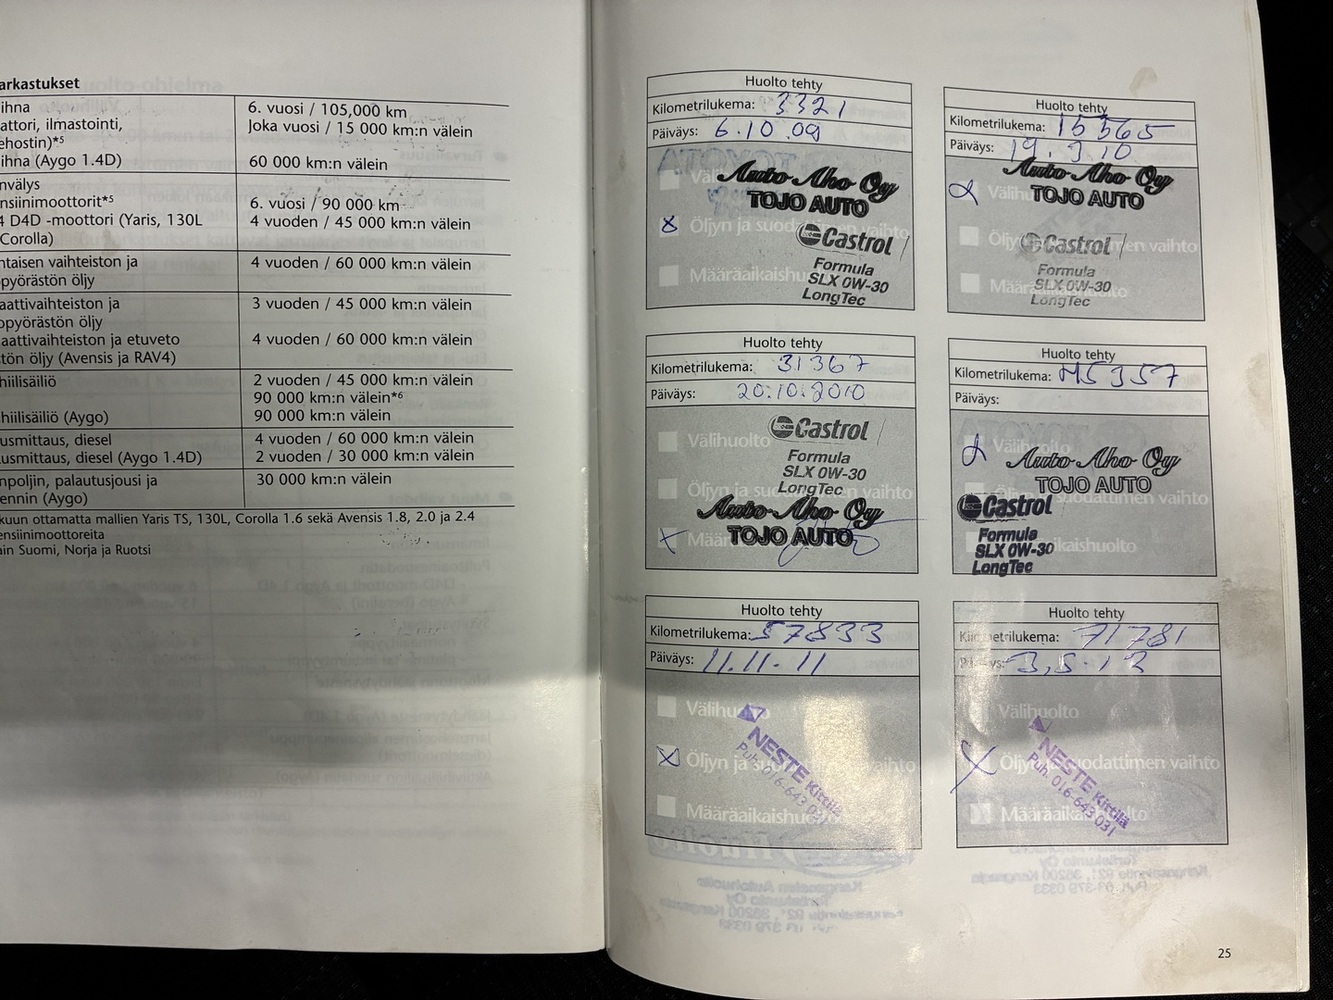 arkastukset
ihna
6. vuosi / 105,000 km
attori, ilmastointi,
Joka vuosi / 15 000 km:n välein
ehostin)*5
ihna (Aygo 1.4D)
60 000 km:n välein
nvälys
nsiinimoottorit*5
6. vuosi / 90 000 km
4 D4D -moottori (Yaris, 130L
4 vuoden / 45 000 km:n välein
Corolla)
ntaisen vaihteiston ja
4 vuoden / 60 000 km:n välein
pyörästön öljy
aattivaihteiston ja
3 vuoden / 45 000 km:n välein
opyörästön öljy
aattivaihteiston ja etuveto
4 vuoden / 60 000 km:n välein
tön öljy (Avensis ja RAV4)
hiilisäiliö
2 vuoden / 45 000 km:n välein
90 000 km:n välein*6
hiilisäiliö (Aygo)
90 000 km:n välein
usmittaus, diesel
4 vuoden / 60 000 km:n välein
usmittaus, diesel (Aygo 1.4D)
2 vuoden / 30 000 km:n välein
npoljin, palautusjousi ja
30 000 km:n välein
ennin (Aygo)
kuun ottamatta mallien Yaris TS, 130L, Corolla 1.6 sekä Avensis 1.8, 2.0 ja 2.4
ensiinimoottoreita
ain Suomi, Norja ja Ruotsi
Huolto tehty
Kilometrilukema: 3321
Päiväys: 6.10.09
Väl
Auto Aho Oy
TOJO AUTO
x Öljyn ja suodattimen vaihto
Castrol
Formula
SLX 0W-30
LongTec
Määräaikaishu
Huolto tehty
Kilometrilukema: 15565
Päiväys: 19.3.10
Välihu
Auto Aho Oy
TOJO AUTO
Öljy men vaihto
Castrol
Formula
SLX 0W-30
LongTec
Määräaikaishuolto
Huolto tehty
Kilometrilukema: 31367
Päiväys: 20.10.2010
Välihuolto
Castrol
Formula
SLX 0W-30
LongTec
Öljyn ja suodattimen vaihto
Auto Aho Oy
TOJO AUTO
x Määr
Huolto tehty
Kilometrilukema: 45357
Päiväys:
Välihuolto
Auto Aho Oy
TOJO AUTO
suodattimen vaihto
Castrol
Formula
SLX 0W-30
LongTec
ikaishuolto
Huolto tehty
Kilometrilukema: 57833
Päiväys: 11.11.11
Välihuolto
x Öljyn ja suodattimen vaihto
Määräaikaishuolto
NESTE Kittilä
Puh. 016-643 031
Huolto tehty
Kilometrilukema: 71781
Päiväys: 3,5.12
Välihuolto
x Öljyn ja suodattimen vaihto
Määräaikaishuolto
NESTE Kittilä
Puh. 016-643 031
25